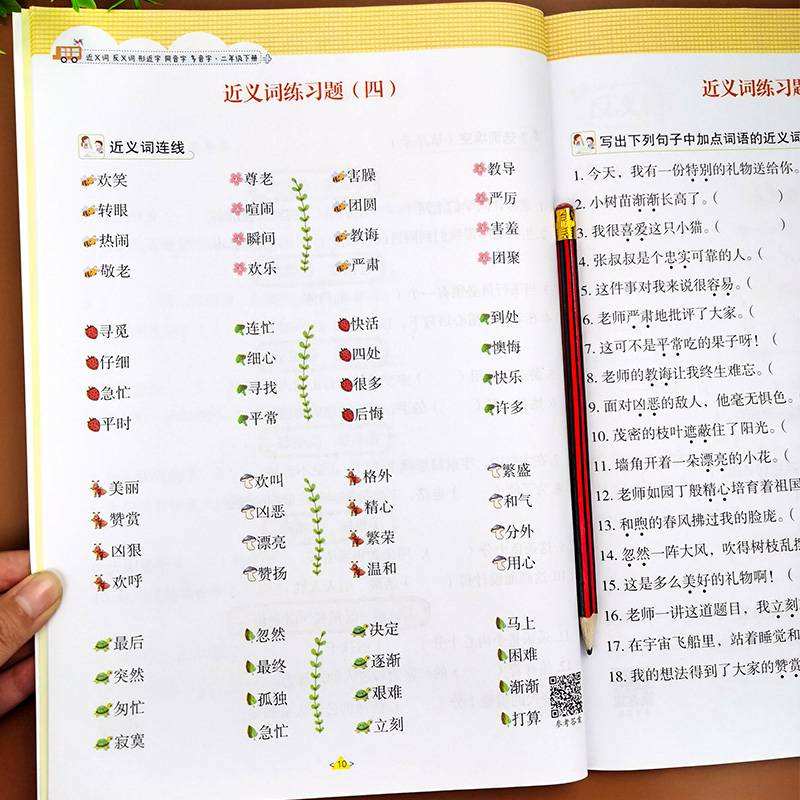 近义词 反义词 形近字 同音字 多音字·二年级下册
近义词练习题（四）
近义词连线
欢笑 尊老 害臊 教导
转眼 喧闹 团圆 严厉
热闹 瞬间 教诲 害羞
敬老 欢乐 严肃 团聚
寻觅 连忙 快活 到处
仔细 细心 四处 懊悔
急忙 寻找 很多 快乐
平时 平常 后悔 许多
美丽 欢叫 格外 繁盛
赞赏 凶恶 精心 和气
凶狠 漂亮 繁荣 分外
欢呼 赞扬 温和 用心
最后 忽然 决定 马上
突然 最终 逐渐 困难
匆忙 孤独 艰难 渐渐
寂寞 急忙 立刻 打算
参考答案
10
近义词练习题
写出下列句子中加点词语的近义词
1. 今天，我有一份特别的礼物送给你。
2. 小树苗渐渐长高了。（ ）
3. 我很喜爱这只小猫。（ ）
4. 张叔叔是个忠实可靠的人。（
5. 这件事对我来说很容易。（
6. 老师严肃地批评了大家。（
7. 这可不是平常吃的果子呀！（
8. 老师的教诲让我终生难忘。（
9. 面对凶恶的敌人，他毫无惧色。
10. 茂密的枝叶遮蔽住了阳光。（
11. 墙角开着一朵漂亮的小花。（
12. 老师如园丁般精心培育着祖国
13. 和煦的春风拂过我的脸庞。（
14. 忽然一阵大风，吹得树枝乱摆
15. 这是多么美好的礼物啊！（
16. 老师一讲这道题目，我立刻
17. 在宇宙飞船里，站着睡觉和
18. 我的想法得到了大家的赞赏